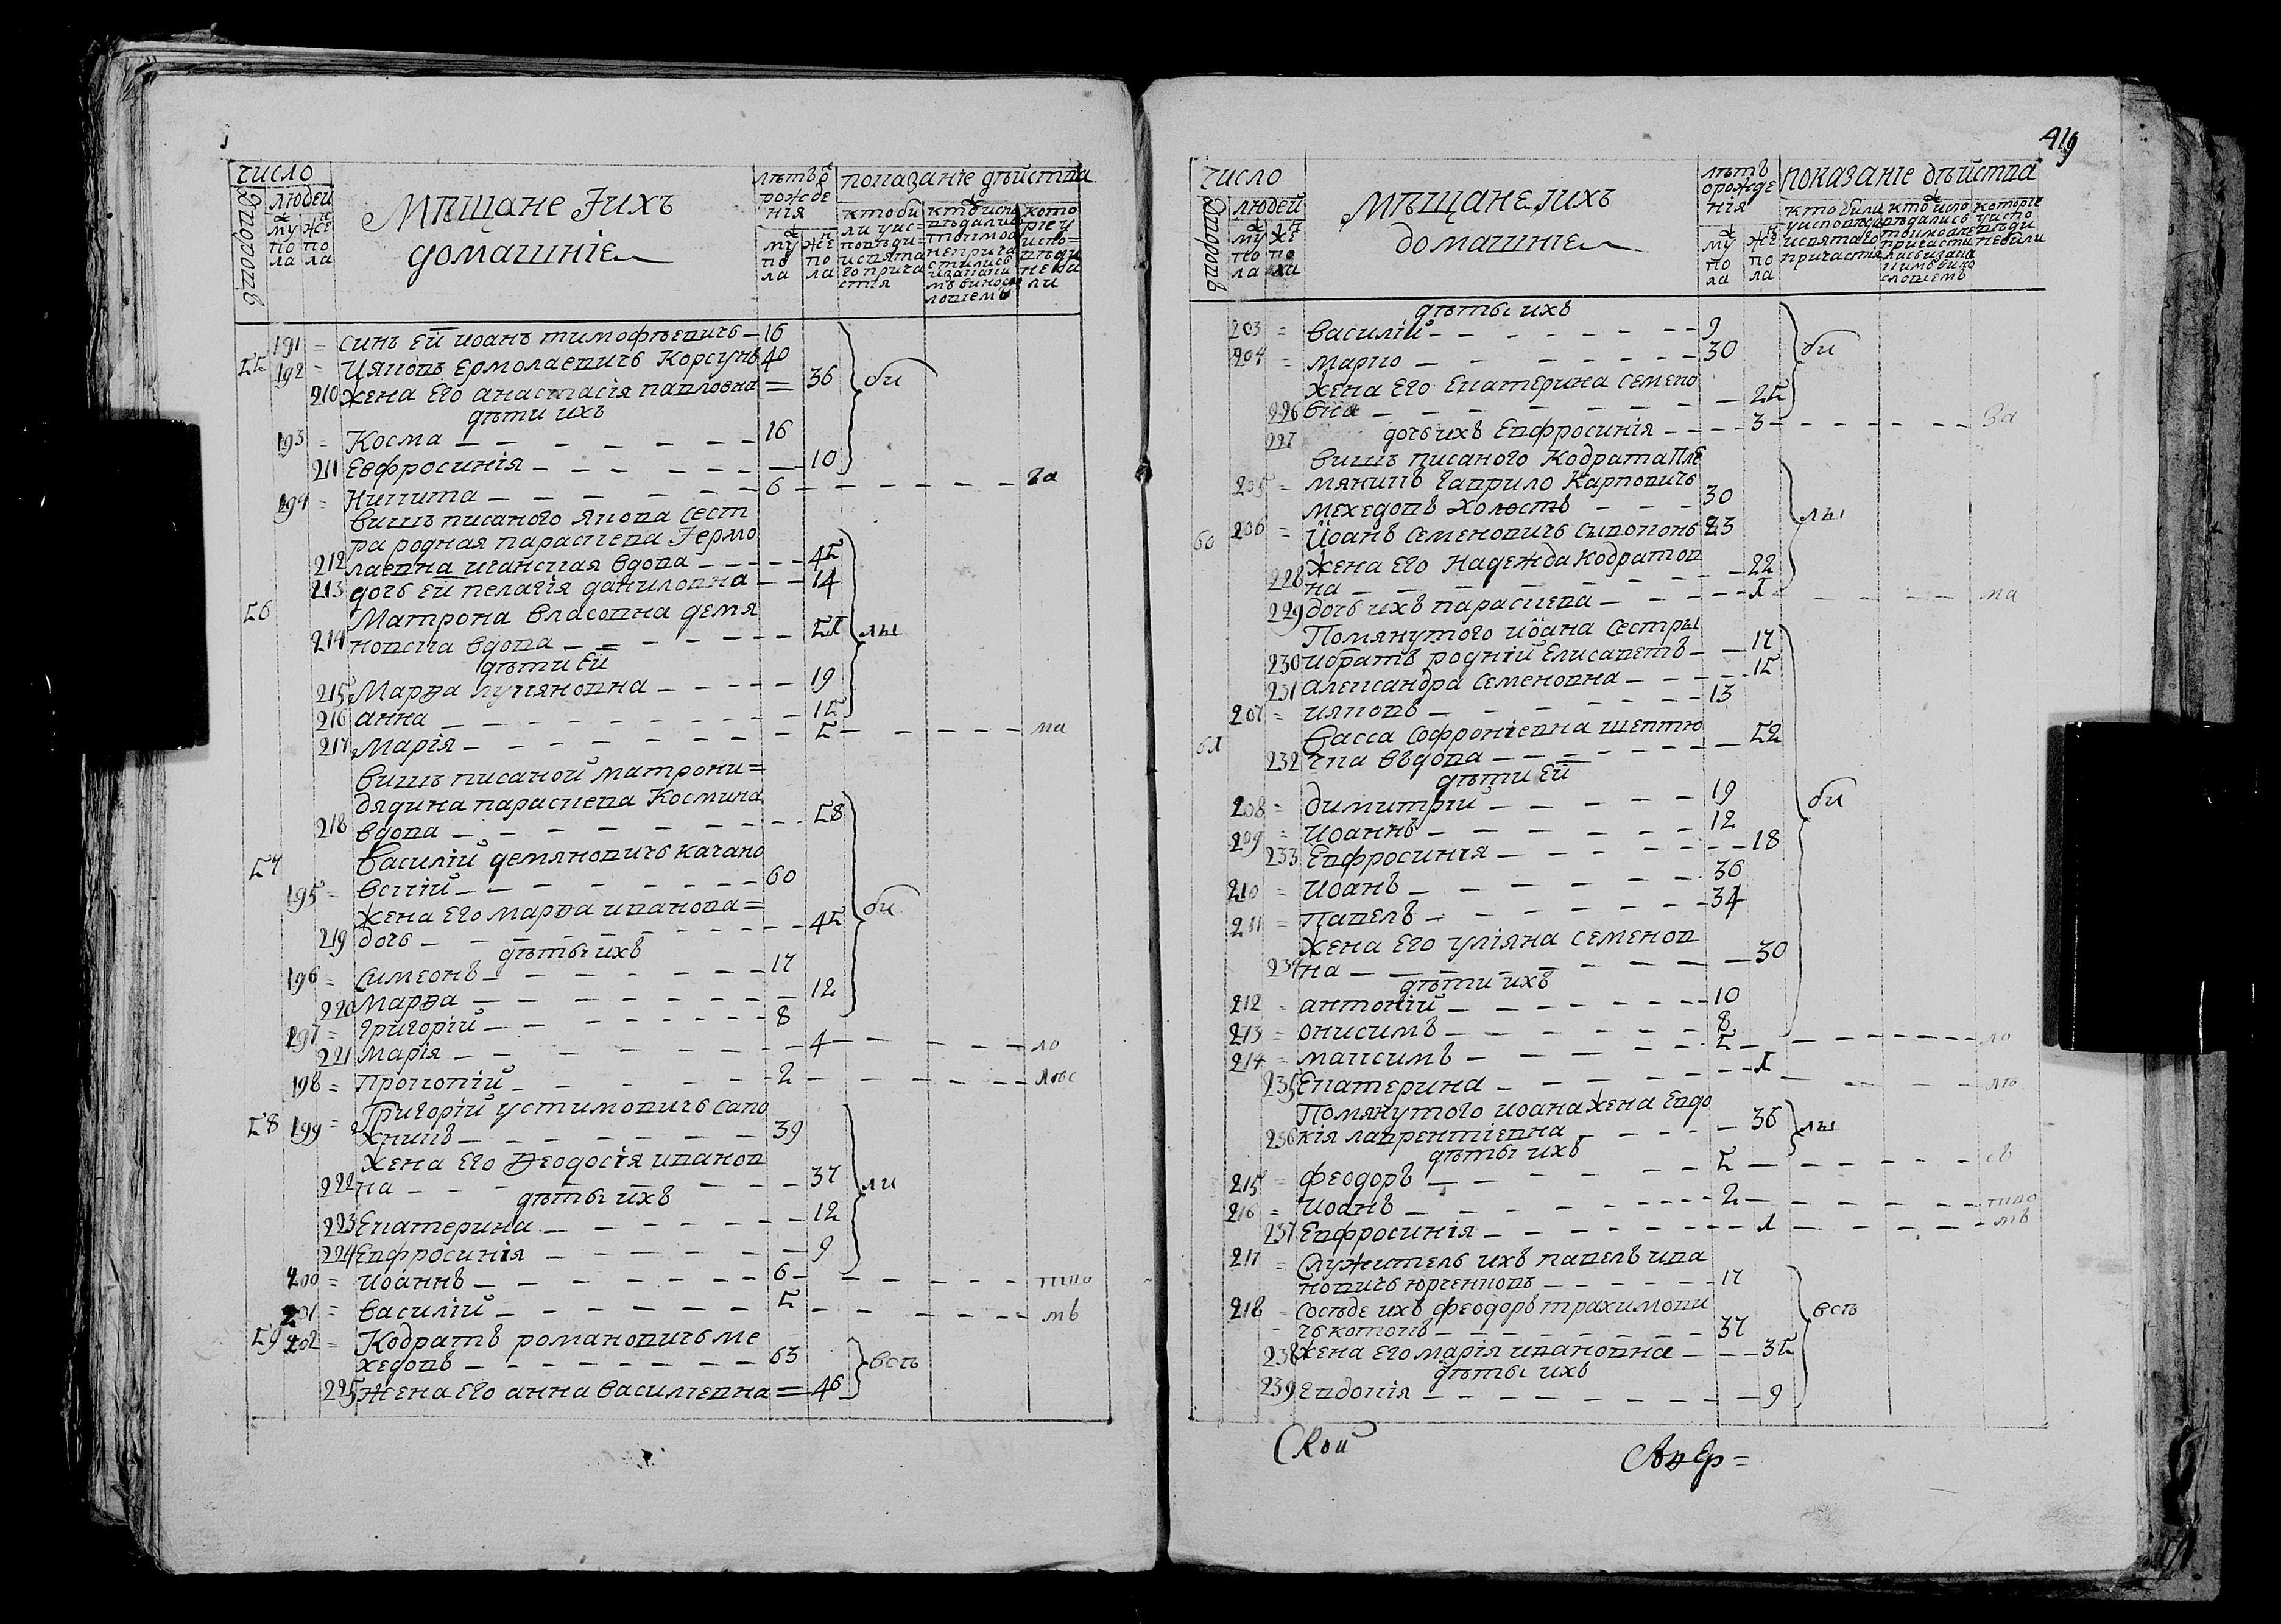 число
дворовъ
людей
муж пола
жен пола
Мѣщане Iихъ
домашнiе
лѣтъ о
рожде
нiя
муж пола
жен пола
показанiе дѣиства
кто би
ли уис=
повѣди=
исвята
го прича
стiя
кто испо
вѣдали
тоимо
неприча
стились
кото
рiе у
испо=
вѣди
неби
ли
191 = синъ ей иоанъ тимофѣевичъ — 16
55 192 = Ияковъ Ермолаевичъ Корсунъ 40
210 жена его анастасiя павловна = 36 би
дѣти ихъ
193 = Косма — 16
211 Евфросинiя — 10
194 = Никита — 6 — за
вишъ писаного Якова сест
ра родная параскева Iермо
212 лаевна иганская вдова — 45
213 дочъ ей пелагiя даниловна — 14
56 Матрона власовна демя
214 новска вдова — 51 лы
дѣти ей
215 Марѳа лукяновна — 19
216 анна — 15
217 Марiя — 5 — ма
вишъ писаной матрони=
дядина параскева Космина
218 вдова — 58
57 Василiй демяновичъ качано
195 = вскiй — 60
жена его марѳа иванова=
219 дочъ — 45 би
дѣты ихъ
196 = Симеонъ — 17
220 Марѳа — 12
197 = григорiй — 8
221 марiя — 4 — ло
198 = Прокопiй — 2 —
58 199 = Григорiй устимовичъ сапо
жникъ — 39
жена его Ѳеодосiя иванов
222 на — 37 ли
дѣты ихъ
223 Екатерина — 12
224 Евфросинiя — 9
200 = иоаннъ — 6 —
201 = василiй — 5 — мъ
59 202 = Кодратъ романовичъ ме
хедовъ — 63
225 Жена его анна василiевна = 46
419
число
дворовъ
людей
муж пола
жен пола
Мѣщане, iихъ
домашнiе
лѣтъ
орожде
нiя
муж пола
жен пола
показанiе дѣйства
кто били
уисповѣди
исвятаго
причастiя
которiе
уиспо
вѣди
небили
дѣты ихъ
203 = василiй — 9
204 = марко — 30 би
жена его Екатерина семено
226 вна — 25
227 дочъ ихъ Евфросинiя — 3 — за
вишъ писаного Кодрата пле
205 = мяникъ гаврило Карповичъ
мехедовъ холостъ — 30 лы
60 206 = Иоанъ семеновичъ сывоконь 23
жена его надежда кодратов
228 на — 22
229 дочъ ихъ параскева — 1 — ма
Помянутого иоана сестры
230 ибратъ роднiй Елисаветъ — 17
231 александра семеновна — 15
207 = ияковъ — 13
61 Васса софронiевна шептю
232 чка въдова — 52
дѣти ей
208 = димитрiй — 19 би
209 = иоаннъ — 12
233 Евфросинiя — 18
210 = иоанъ — 36
211 = павелъ — 34
жена его улiяна семенов
234 на — 30
дѣти ихъ
212 = антонiй — 10
213 = онисимъ — 8
214 = максимъ — 5 — ло
235 Екатерина — 1 —
Помянутого иоана жена Евдо
236 кiя лаврентiевна — 36 лы
дѣты ихъ
215 = феодоръ — 5 — съ
216 = иоанъ — 2 —
237 Евфросинiя — 1 — мъ
217 = служитель ихъ павелъ ива
новичъ юрченковъ — 17
218 = сосѣде ихъ феодоръ трахимови
чъ котокъ — 37
238 жена его марiя ивановна — 35
дѣты ихъ
239 Евдокiя — 9
Ской